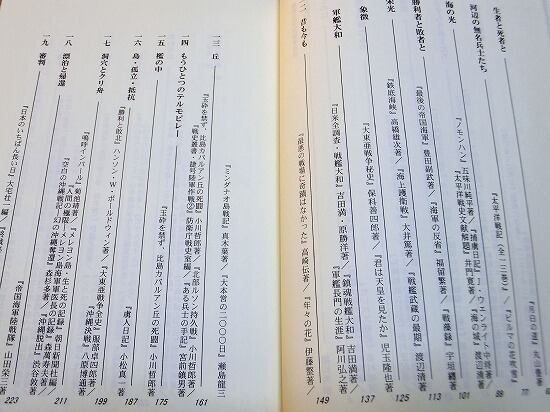 生者と死者と
『月白の道』丸山豊著
77
河辺の無名兵士たち
『ビルマの花吹雪』
88
『太平洋戦記(全一三巻)』
『ノモンハン』五味川純平著/『捕虜日記』J・ウェンライト中将著/
『太平洋戦史文献解題』井門寛著/『海の城』渡辺清
101
海の光
『最後の帝国海軍』豊田副武著/『海軍の反省』福留繁著/『戦藻録』宇垣纒
113
勝利者と敗者と
『鉄底海峡』高橋雄次著/『海上護衛戦』大井篤著/『戦艦武蔵の最期』渡辺清
125
栄光
『大東亜戦争秘史』保科善四郎著/『君は天皇を見たか』児玉隆也著
135
象徴
137
軍艦大和
『日米全調査・戦艦大和』吉田満・原勝洋著/『鎮魂戦艦大和』吉田満著/
『軍艦長門の生涯』阿川弘之著
149
一二 昔も今も
『最悪の戦場に奇蹟はなかった』高崎伝著/『年々の花』伊藤整著/
一三 丘
『ミンダナオ島戦記』真木葉著/『大本営の二〇〇〇日』瀬島龍三
161
一四 もうひとつのテルモピレー
『玉砕を禁ず、比島カバルアン丘の死闘』小川哲郎著/『北部ルソン持久戦』小川哲郎著/
『戦史叢書・捷号陸軍作戦②』防衛庁戦史室編/『ある兵士の手記』宮前鎮男著
175
一五 檻の中
『玉砕を禁ず、比島カバルアン丘の死闘』小川哲郎著
187
一六 島・孤立・抵抗
『虜人日記』小松真一著
『勝利と敗北』ハンソン・W・ボールドウィン著/『大東亜戦争全史』服部卓四郎著/
『沖縄決戦』八原博通著
199
一七 洞穴とクリ舟
『嗚呼、インパール』菊池靖著/『メレヨン島・生と死の記録』朝日新聞社編/
『人間の極限・メレヨン島海軍軍医長の記録』森萬寿夫著/
『空白の沖縄戦記―幻の沖縄奪還』森杉多著/『沖縄脱出』渋谷敦著
211
一八 漂泊と帰還
『帝国海軍陸戦隊』山田栄三著
223
一九 審判
『日本のいちばん長い日』大宅壮一編/